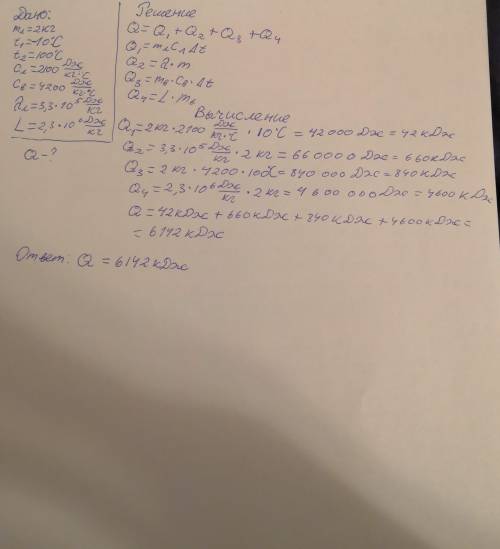 Дано:
m₁=2кг
t₁=-10°C
t₂=100°C
Cл=2100 Дж/кг·°C
Cв=4200 Дж/кг·°C
λл=3,3·10⁵ Дж/кг
L=2,3·10⁶ Дж/кг
Q-?
Решение
Q=Q₁+Q₂+Q₃+Q₄
Q₁=mлCлΔt
Q₂=λ·m
Q₃=mв·Cв·Δt
Q₄=L·mв
Вычисление
Q₁=2кг·2100 Дж/кг·°C·10°C=42000Дж=42кДж
Q₂=3,3·10⁵ Дж/кг·2кг=660000Дж=660кДж
Q₃=2кг·4200·100°C=840000Дж=840кДж
Q₄=2,3·10⁶ Дж/кг·2кг=4600000Дж=4600кДж
Q=42кДж+660кДж+840кДж+4600кДж=
=6142кДж
Ответ: Q=6142кДж